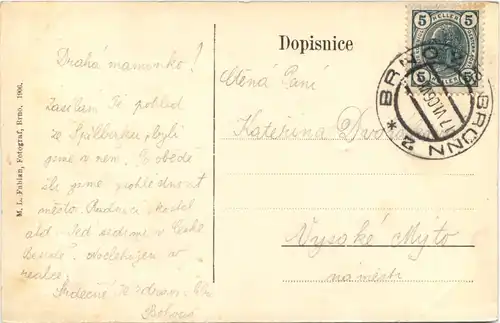 Dopisnice
Drahá maminko!
Zasílám Ti pohled
ze Špilberku, byli
jsme v něm. Po obědě
šli jsme prohlédnout
město. Rudolci kostel
atd. Teď sedíme v České
Besedě. Nocležujem v
realce.
Srdečně Tě zdraví
Ctěná Paní
Kateřina
Vysoké Mýto
náměstí
5 HELLER 5
5 5
BRNO 2 BRÜNN 2
M. L. Fabian, Fotograf, Brno. 1906.